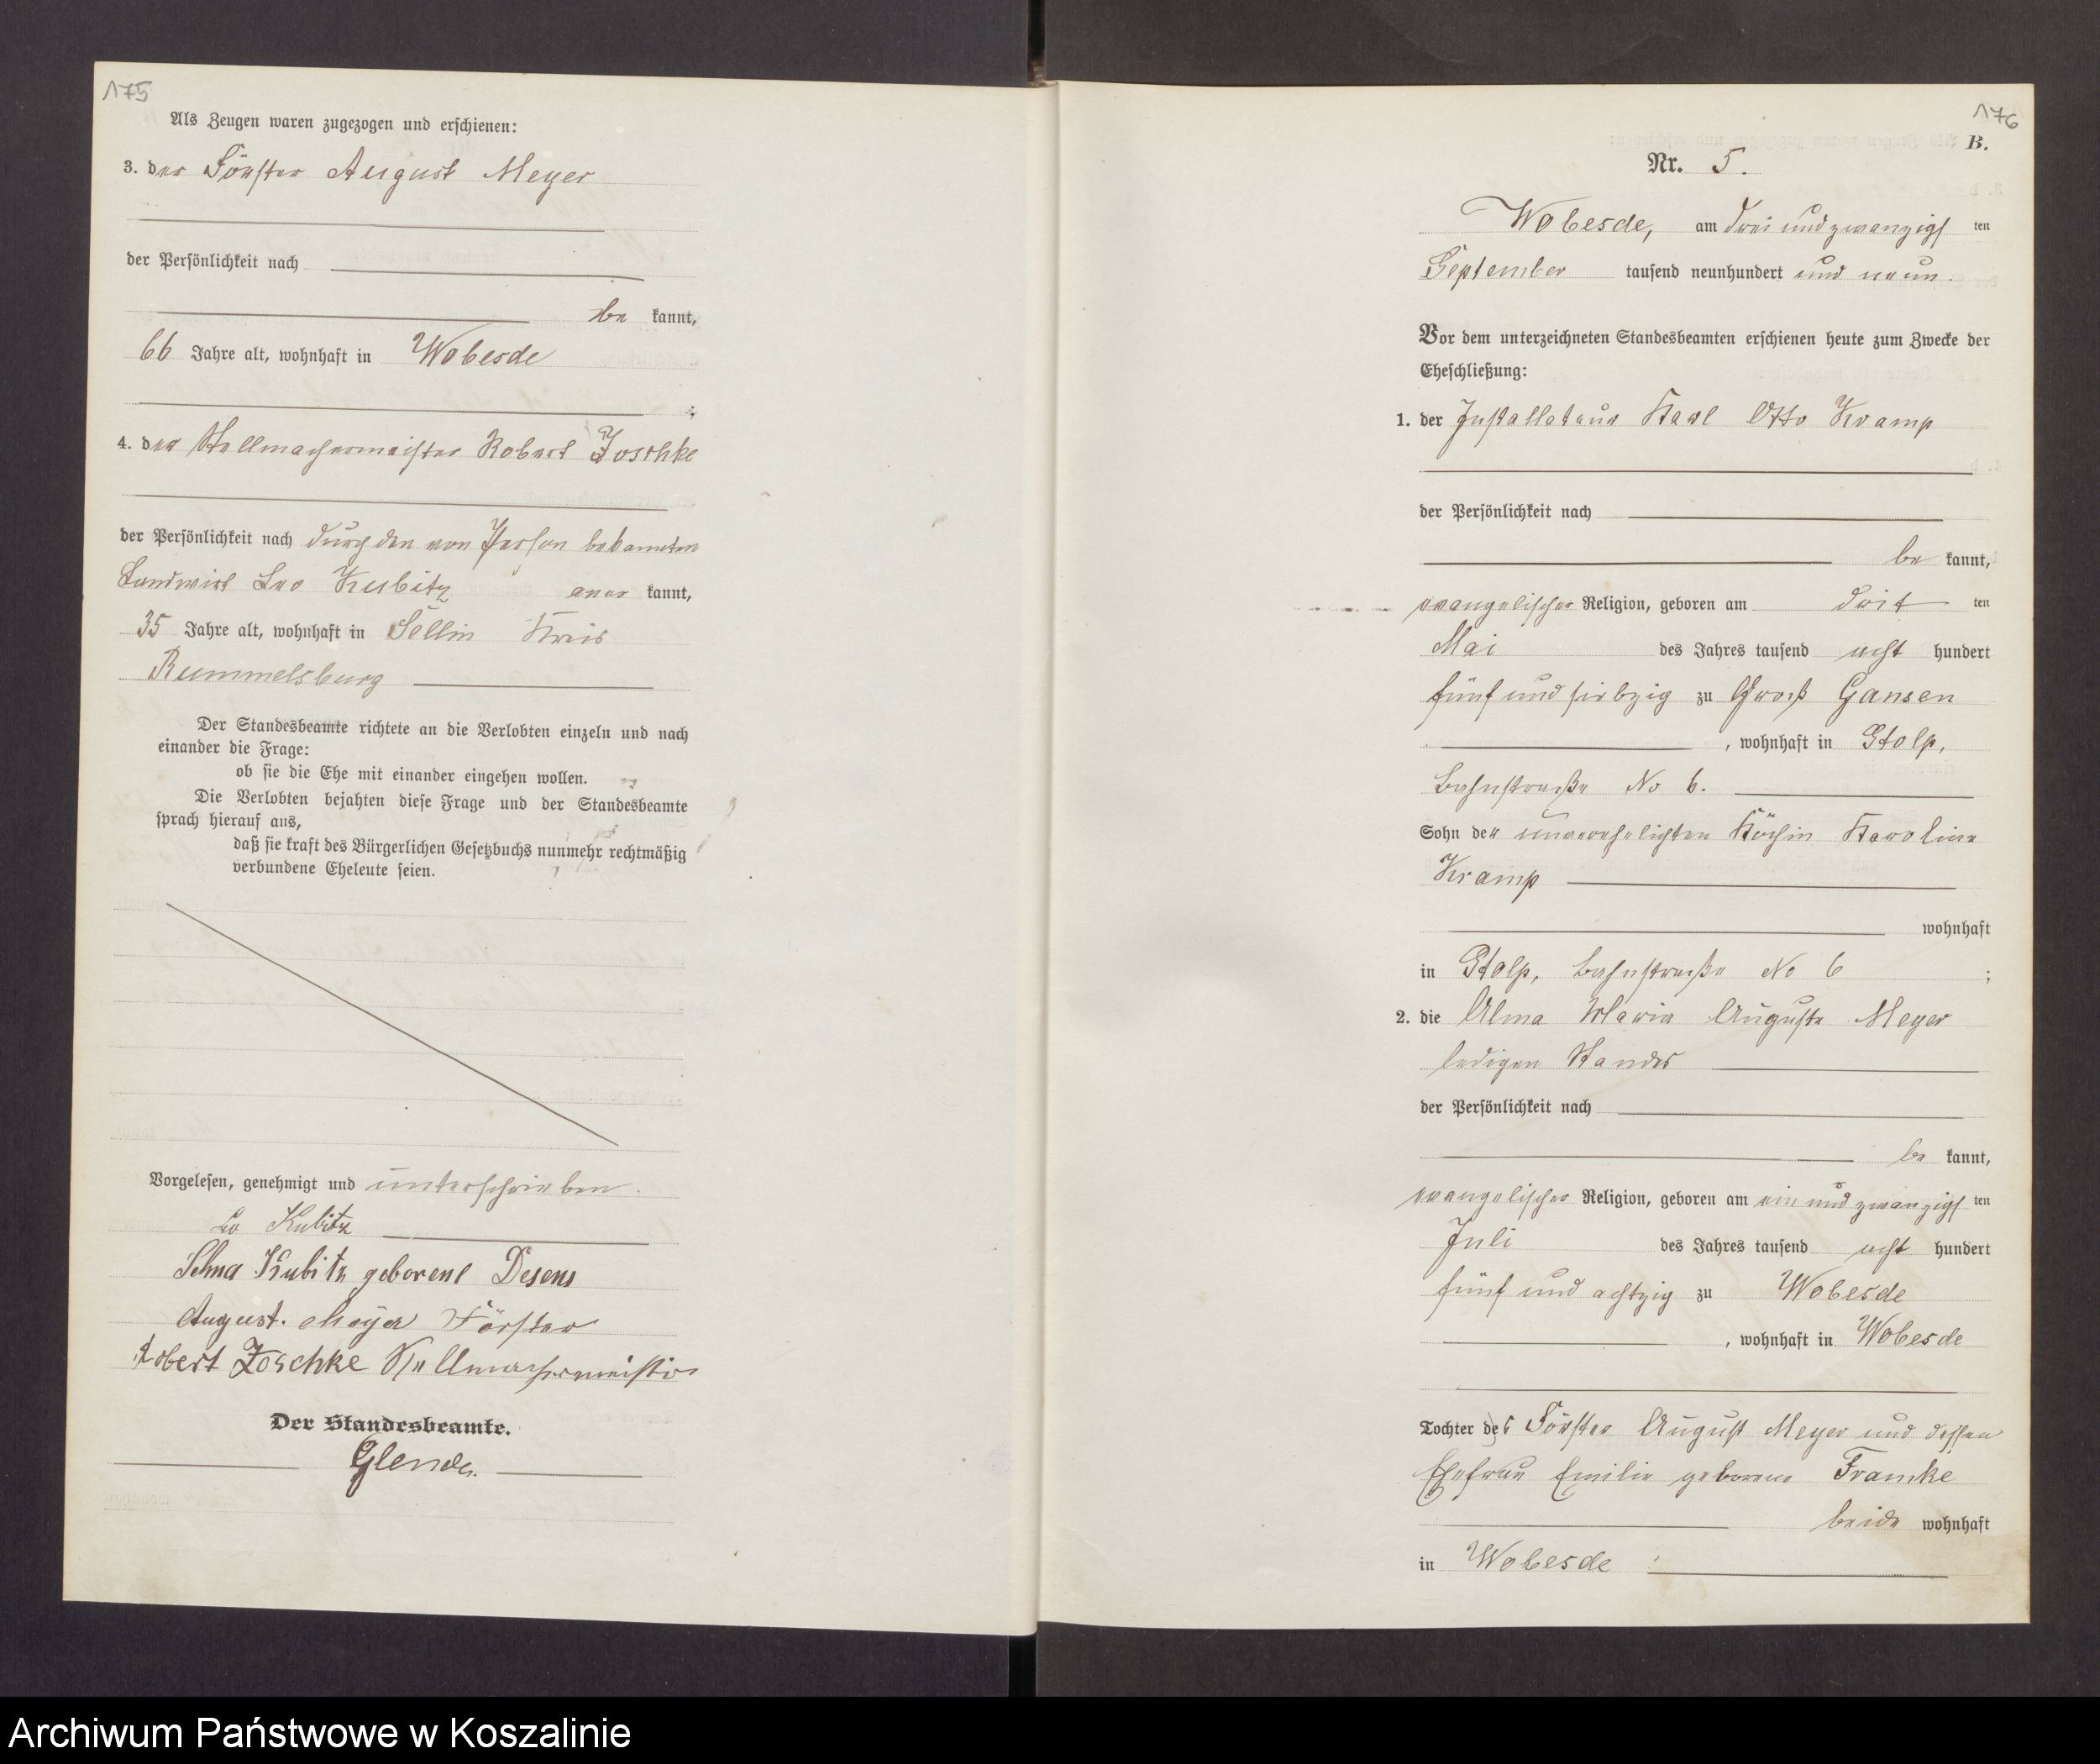 175
Als Zeugen waren zugezogen und erschienen:
3. der Förster August Meyer
der Persönlichkeit nach
be kannt,
66 Jahre alt, wohnhaft in Wobesde
;
4. der Stellmachermeister Robert Joschke
der Persönlichkeit nach durch den von Person bekannten
Landwirt Leo Kubitz aner kannt,
35 Jahre alt, wohnhaft in Sellin Kreis
Rummelsburg
Der Standesbeamte richtete an die Verlobten einzeln und nach
einander die Frage:
ob sie die Ehe mit einander eingehen wollen.
Die Verlobten bejahten diese Frage und der Standesbeamte
sprach hierauf aus,
daß sie kraft des Bürgerlichen Gesetzbuchs nunmehr rechtmäßig
verbundene Eheleute seien.
Vorgelesen, genehmigt und unterschrieben.
Leo Kubitz
Selma Kubitz geborene Desens
August. Meyer Förster
Robert Zoschke Stellmachermeister
Der Standesbeamte.
176
B.
Nr. 5.
Wobesde, am drei und zwanzigs ten
September tausend neunhundert und neun.
Vor dem unterzeichneten Standesbeamten erschienen heute zum Zwecke der
Eheschließung:
1. der Installateur Karl Otto Kramp
der Persönlichkeit nach
be kannt,
evangelischer Religion, geboren am drit ten
Mai des Jahres tausend acht hundert
fünf und siebzig zu Groß Gansen
, wohnhaft in Stolp,
Bahnstraße No 6.
Sohn der unverehelichten Köchin Karoline
Kramp
wohnhaft
in Stolp, Bahnstraße No 6 ;
2. die Alma Maria Auguste Meyer
ledigen Standes
der Persönlichkeit nach
be kannt,
evangelischer Religion, geboren am ein und zwanzigs ten
Juli des Jahres tausend acht hundert
fünf und achtzig zu Wobesde
, wohnhaft in Wobesde
Tochter des Förster August Meyer und dessen
Ehefrau Emilie geborene Framke
beide wohnhaft
in Wobesde
Archiwum Państwowe w Koszalinie